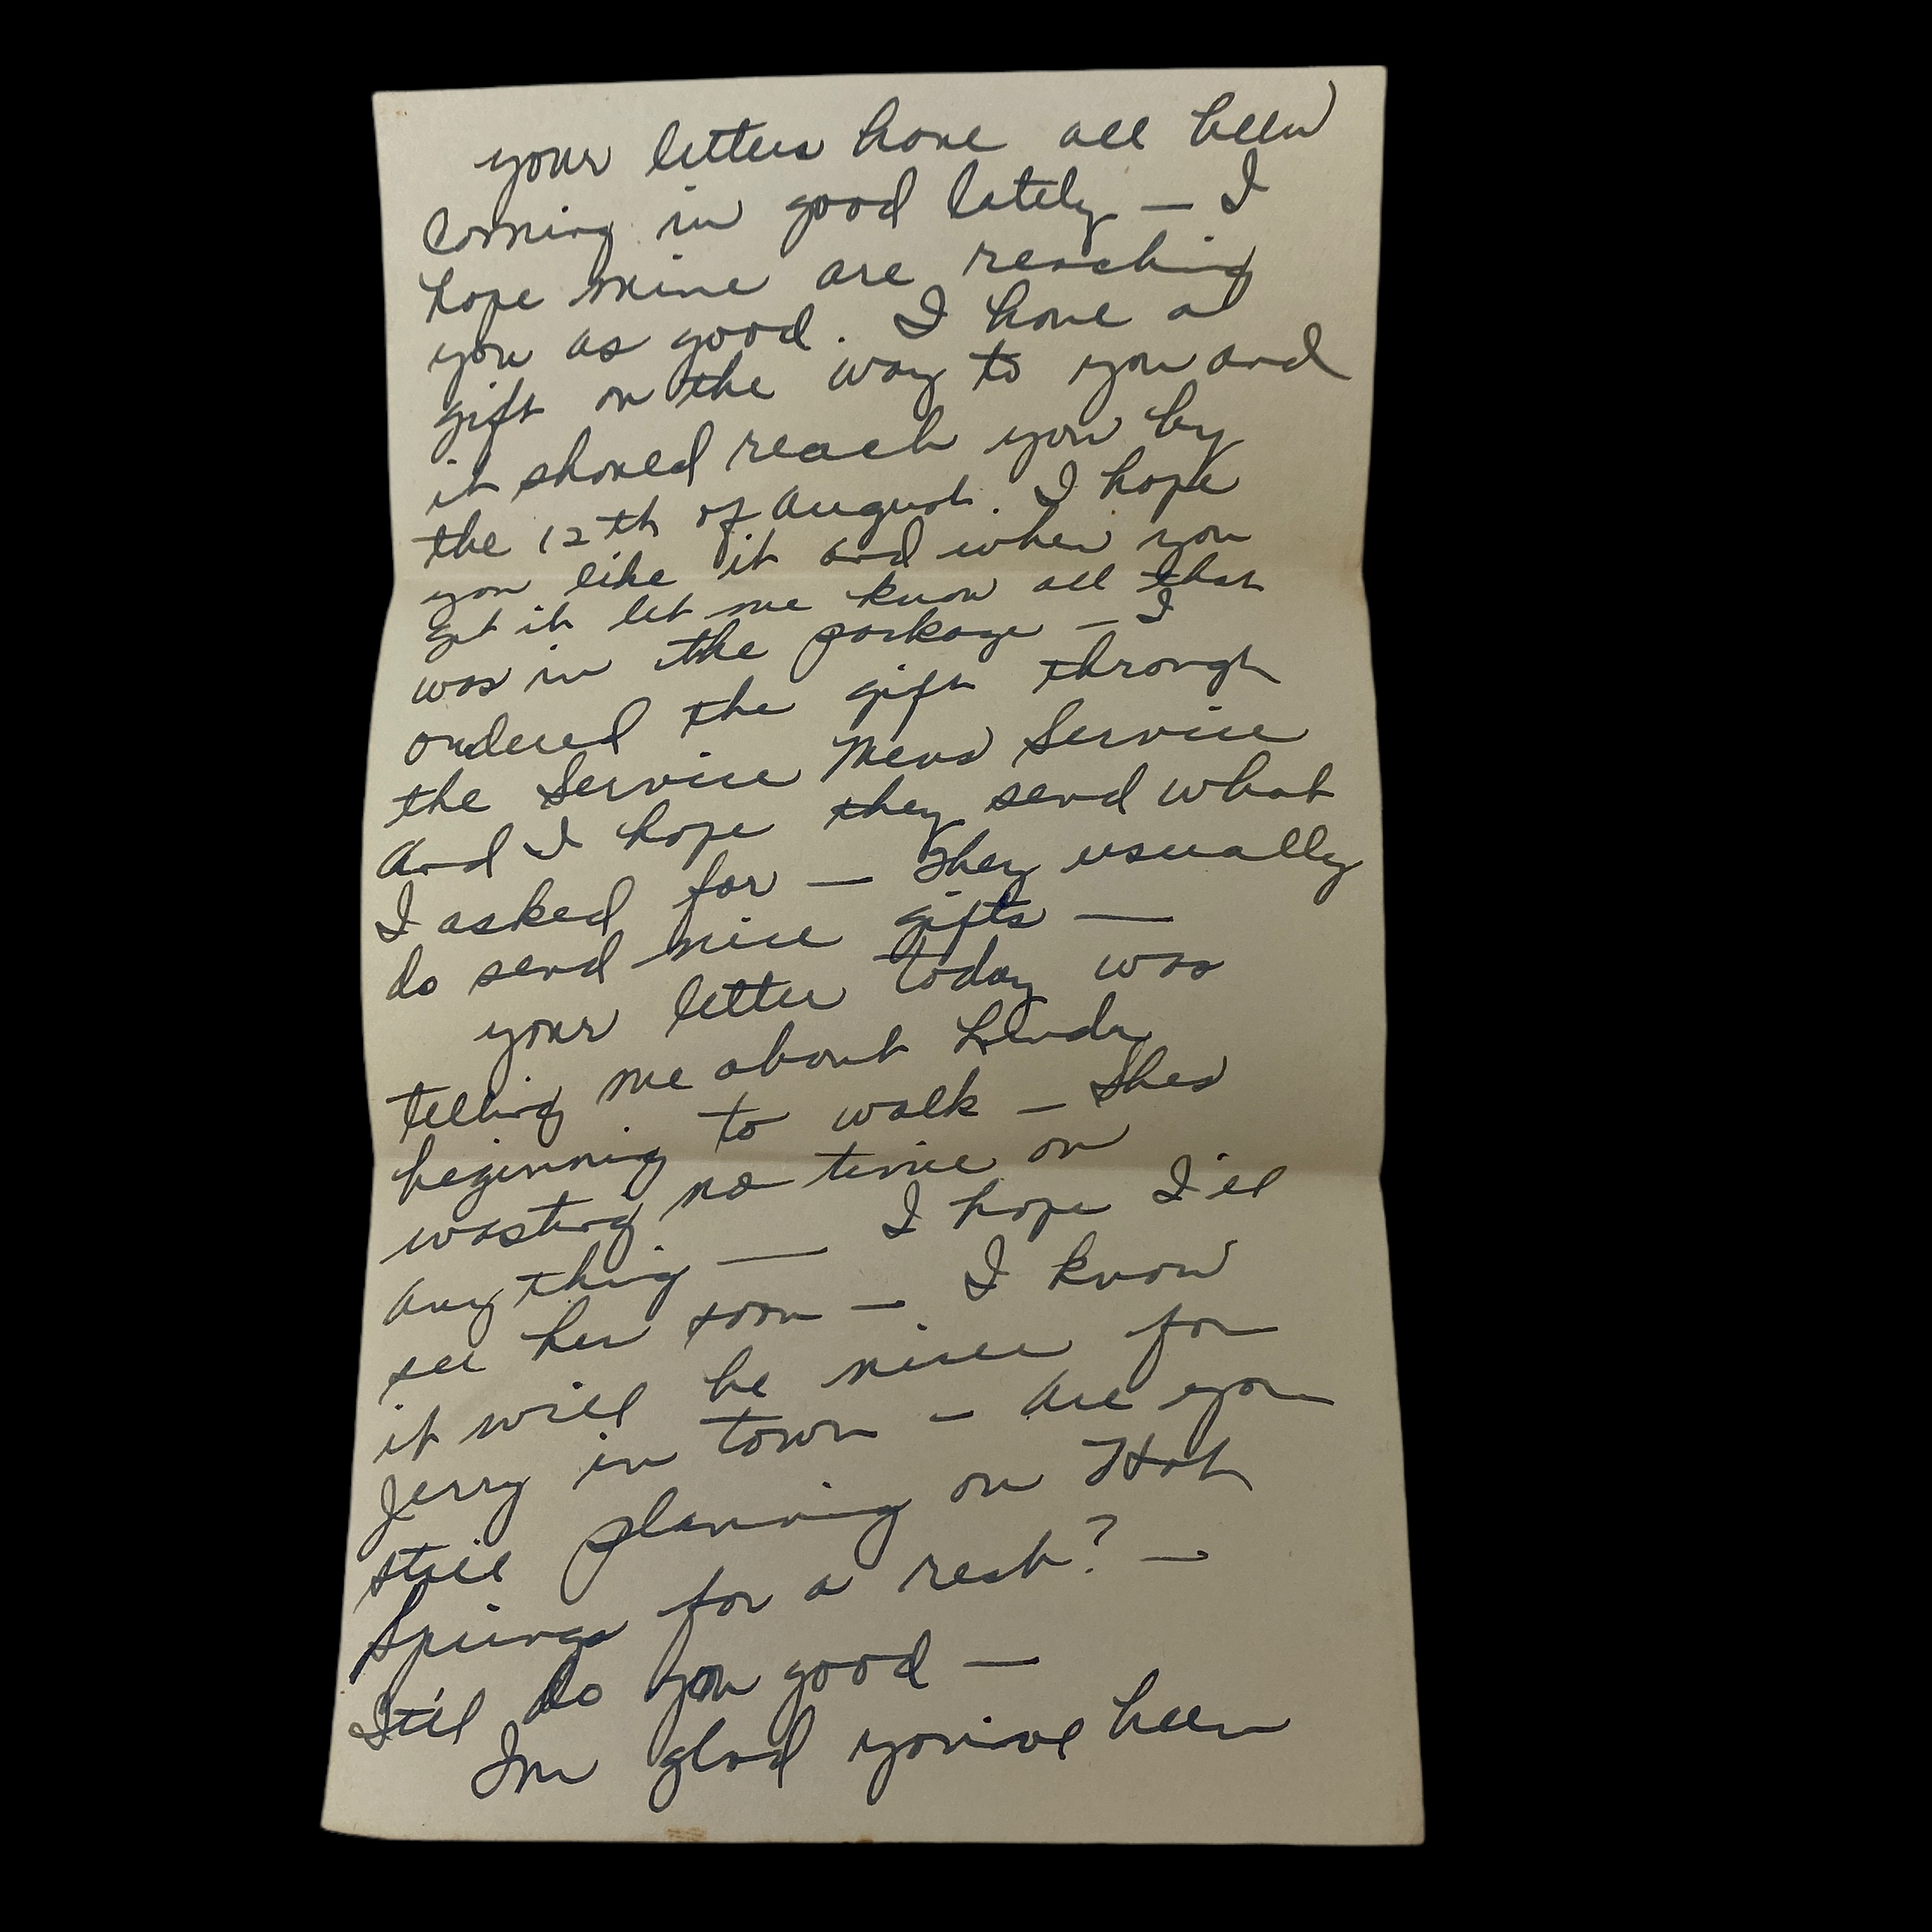 your letters have all been
coming in good lately — I
hope mine are reaching
you as good. I have a
gift on the way to you and
it should reach you by
the 12th of August. I hope
you like it and when you
get it let me know all that
was in the package — I
ordered the gift through
the Service Mens Service
and I hope they send what
I asked for — They usually
do send nice gifts —
your letter today was
telling me about Linda
beginning to walk — Shes
wasting no time on
anything — I hope I'll
see her soon — I know
it will be nicer for
Jerry in town — Are you
still planning on Hot
Springs for a rest? —
It'l do you good —
Im glad you'ove been